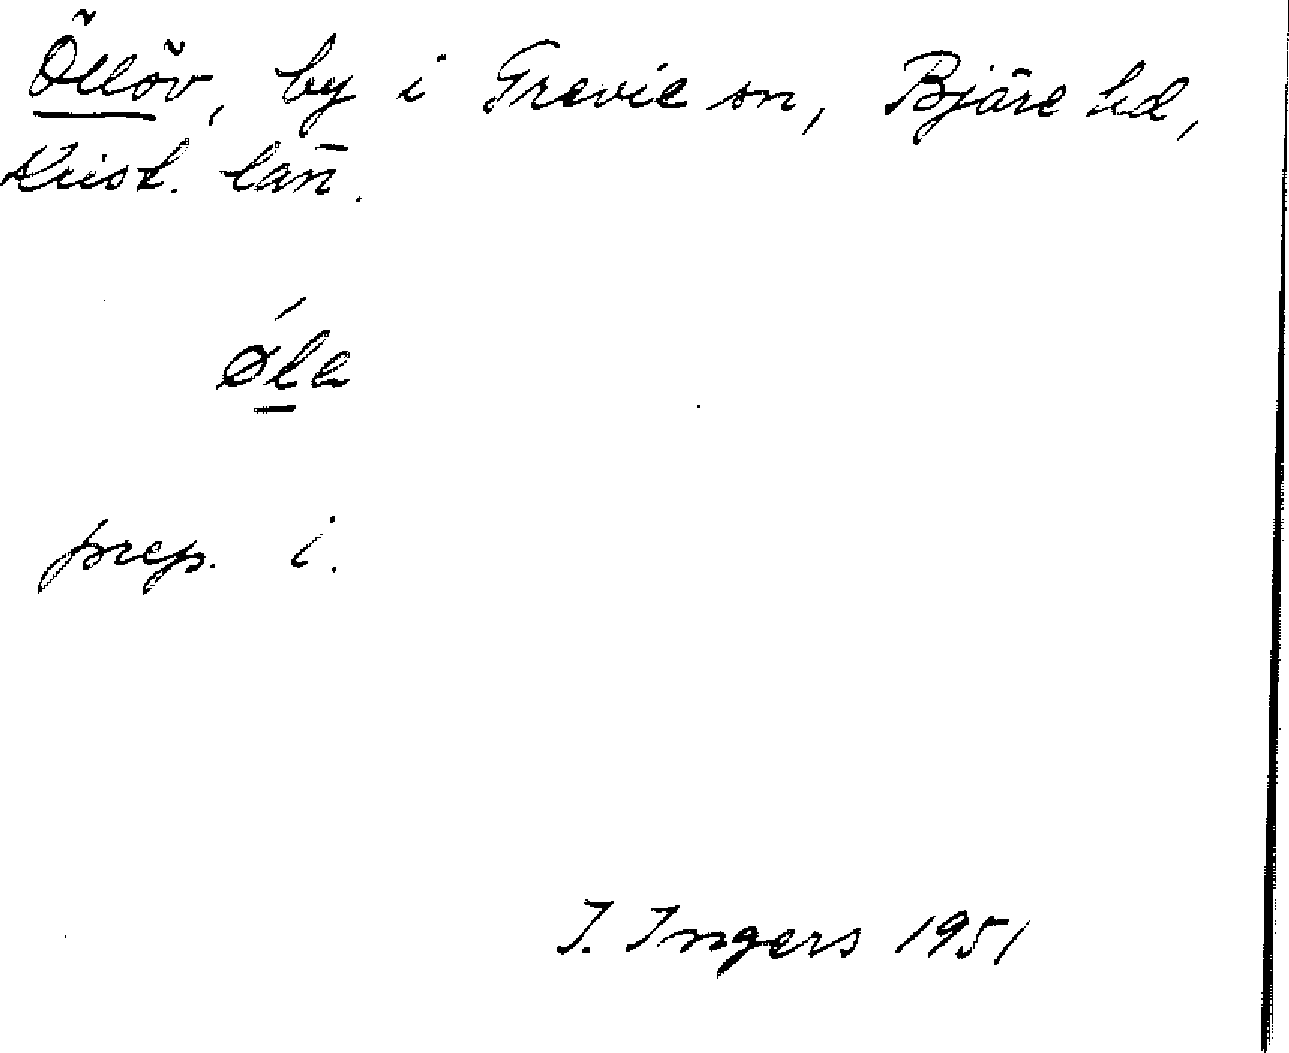 Öllöv, by i Grevie sn, Bjäre hd,
Krist. län.
øla
prep. i.
I. Ingers 1951